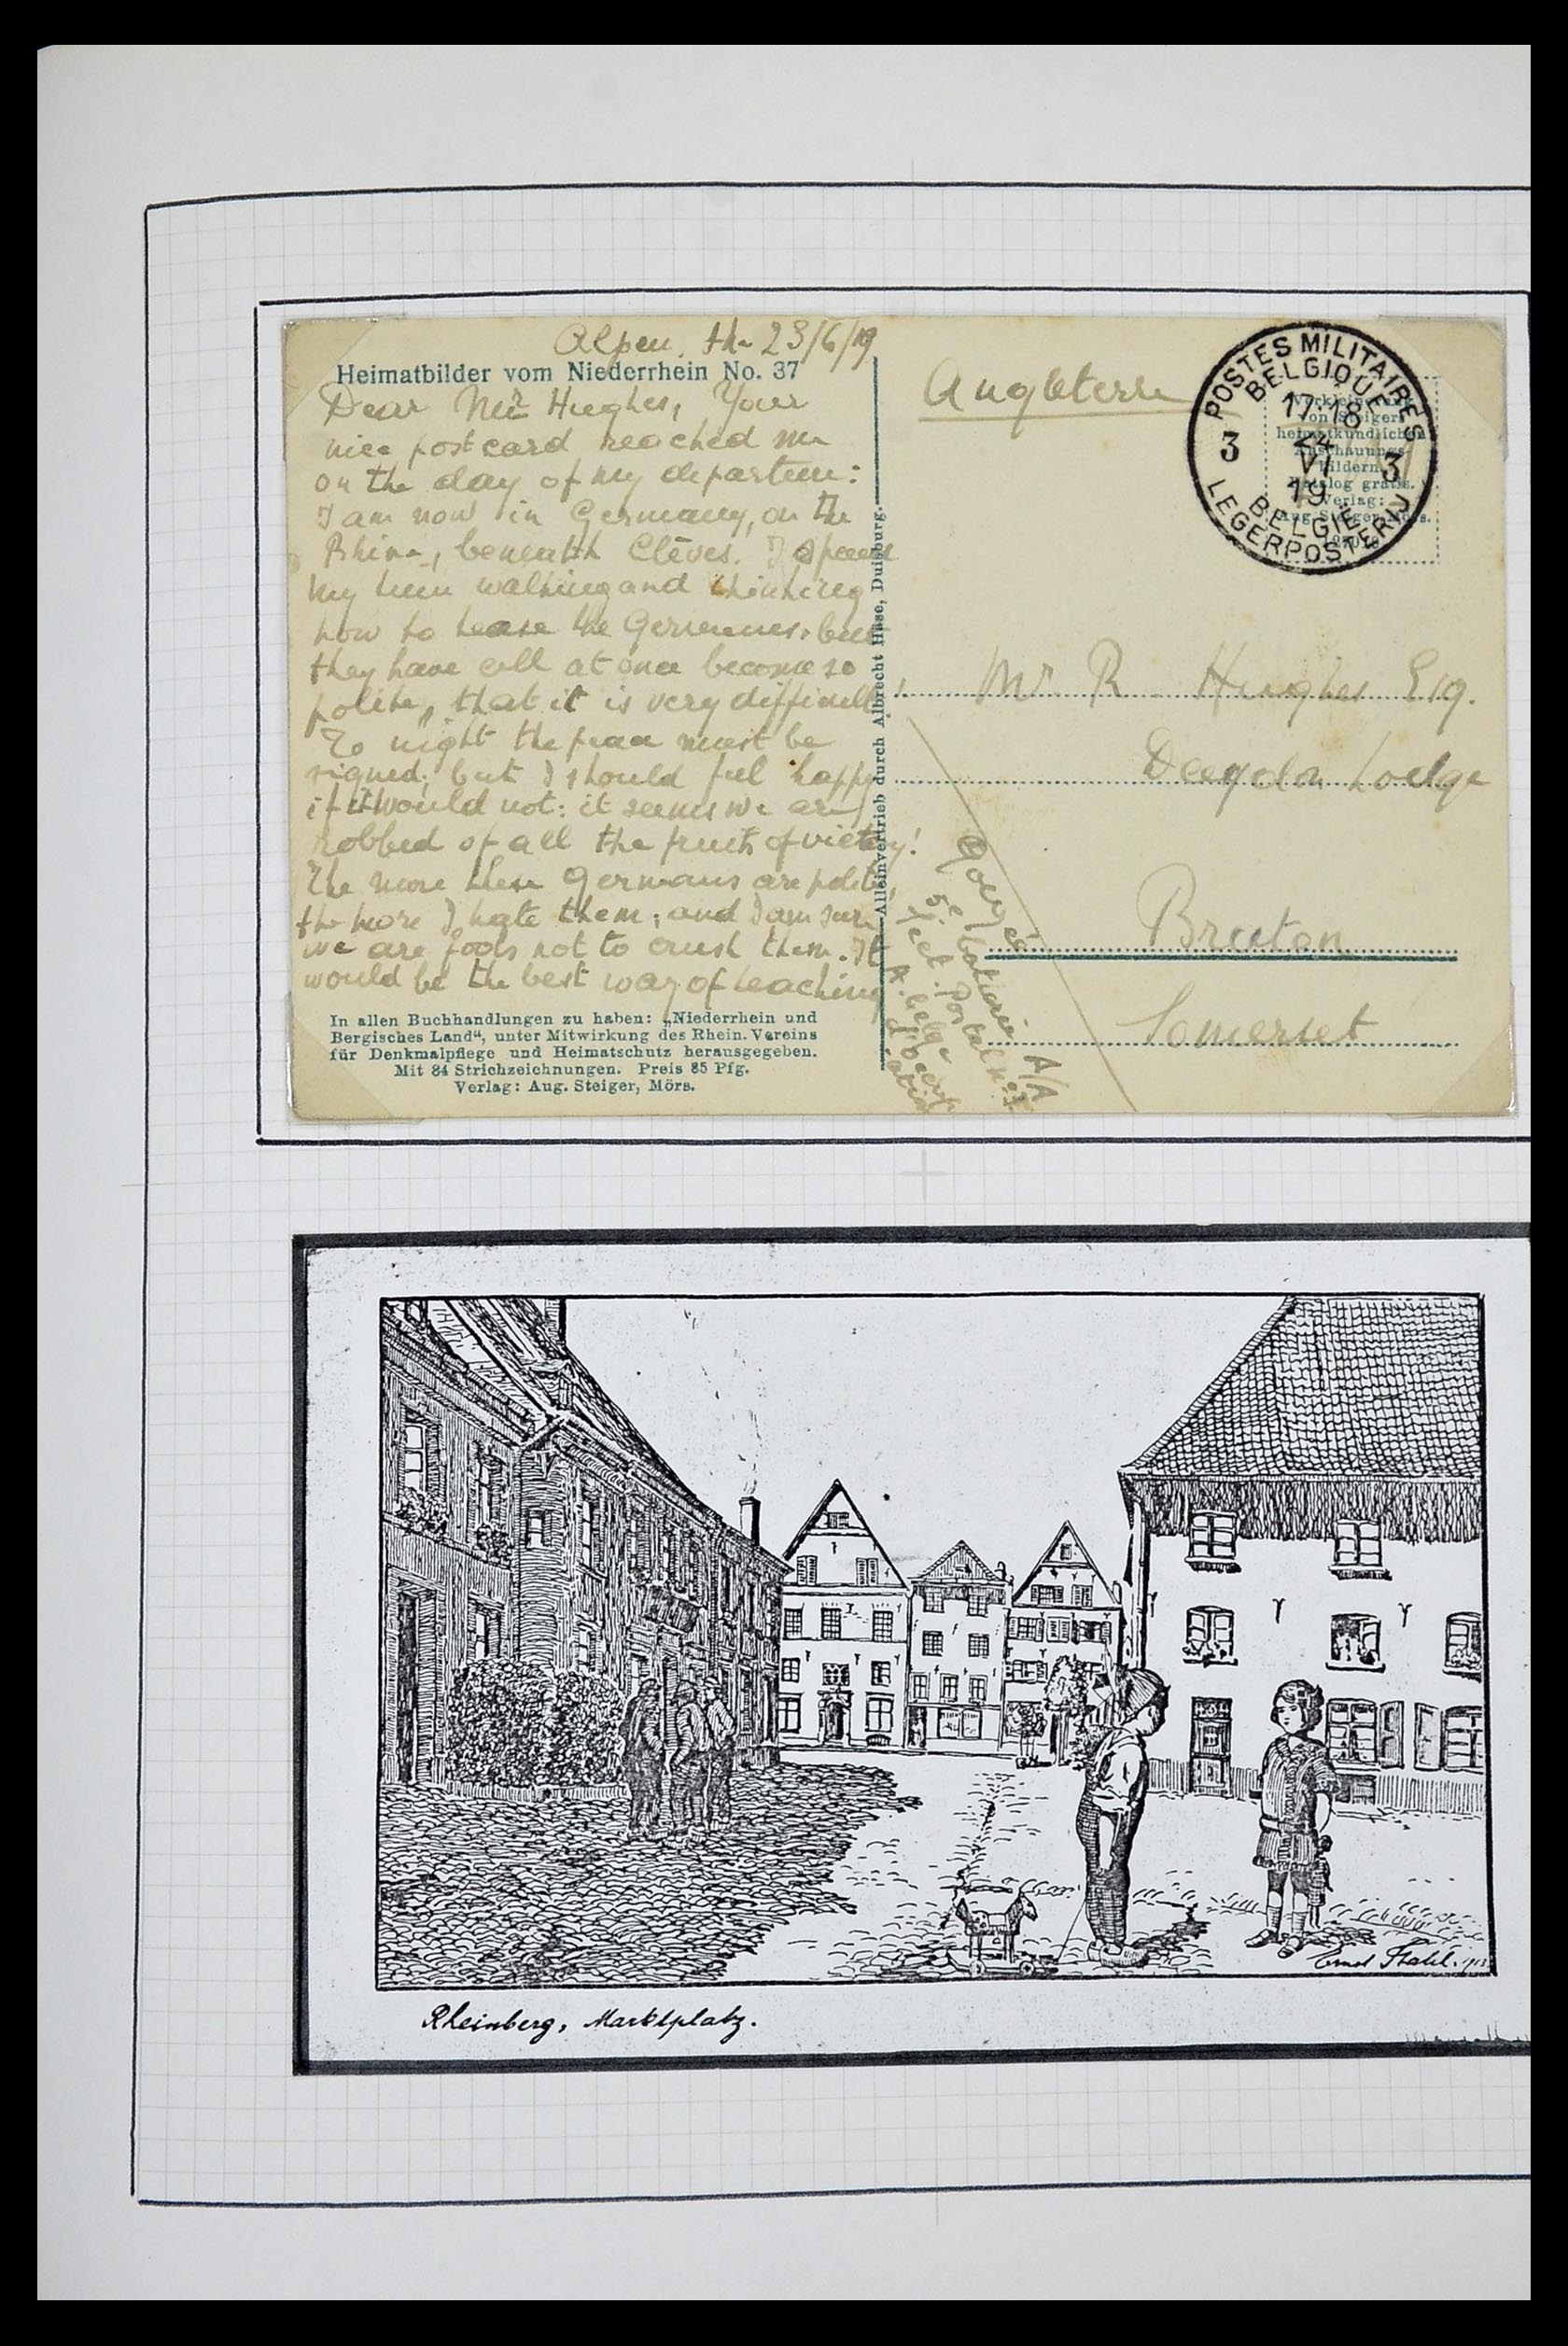 Alpen, the 23/6/19
Heimatbilder vom Niederrhein No. 37
Dear Mr Hughes, Your
nice postcard reached me
on the day of my departure:
I am now in Germany, on the
Rhine, beneath Clèves. I spend
my time walking and thinking
how to tease the Germans. but
they have all at once become so
polite, that it is very difficult!
To night the peace must be
signed; but I should feel happy
if it would not: it seems we are
robbed of all the fruits of victory!
The more these Germans are polite,
the more I hate them; and I am sure
we are fools not to crush them. It
would be the best way of teaching
In allen Buchhandlungen zu haben: „Niederrhein und
Bergisches Land“, unter Mitwirkung des Rhein. Vereins
für Denkmalpflege und Heimatschutz herausgegeben.
Mit 84 Strichzeichnungen. Preis 85 Pfg.
Verlag: Aug. Steiger, Mörs.
Alleinvertrieb durch Albrecht Hase, Duisburg.
Angleterre
POSTES MILITAIRES
BELGIQUE
17-18
24
VI
19
3 3
BELGIE
LEGERPOSTERIJ
Verkleinerung
von Steigers
heimatkundlichen
Anschauungs-
bildern.
Katalog gratis.
Verlag:
Aug. Steiger, Mörs.
Mr R Hughes Esq.
Lodge
Bruton
Somerset
5e batterie A/A
A. belge
Rheinberg, Marktplatz.
Ernst Stahl. 1913